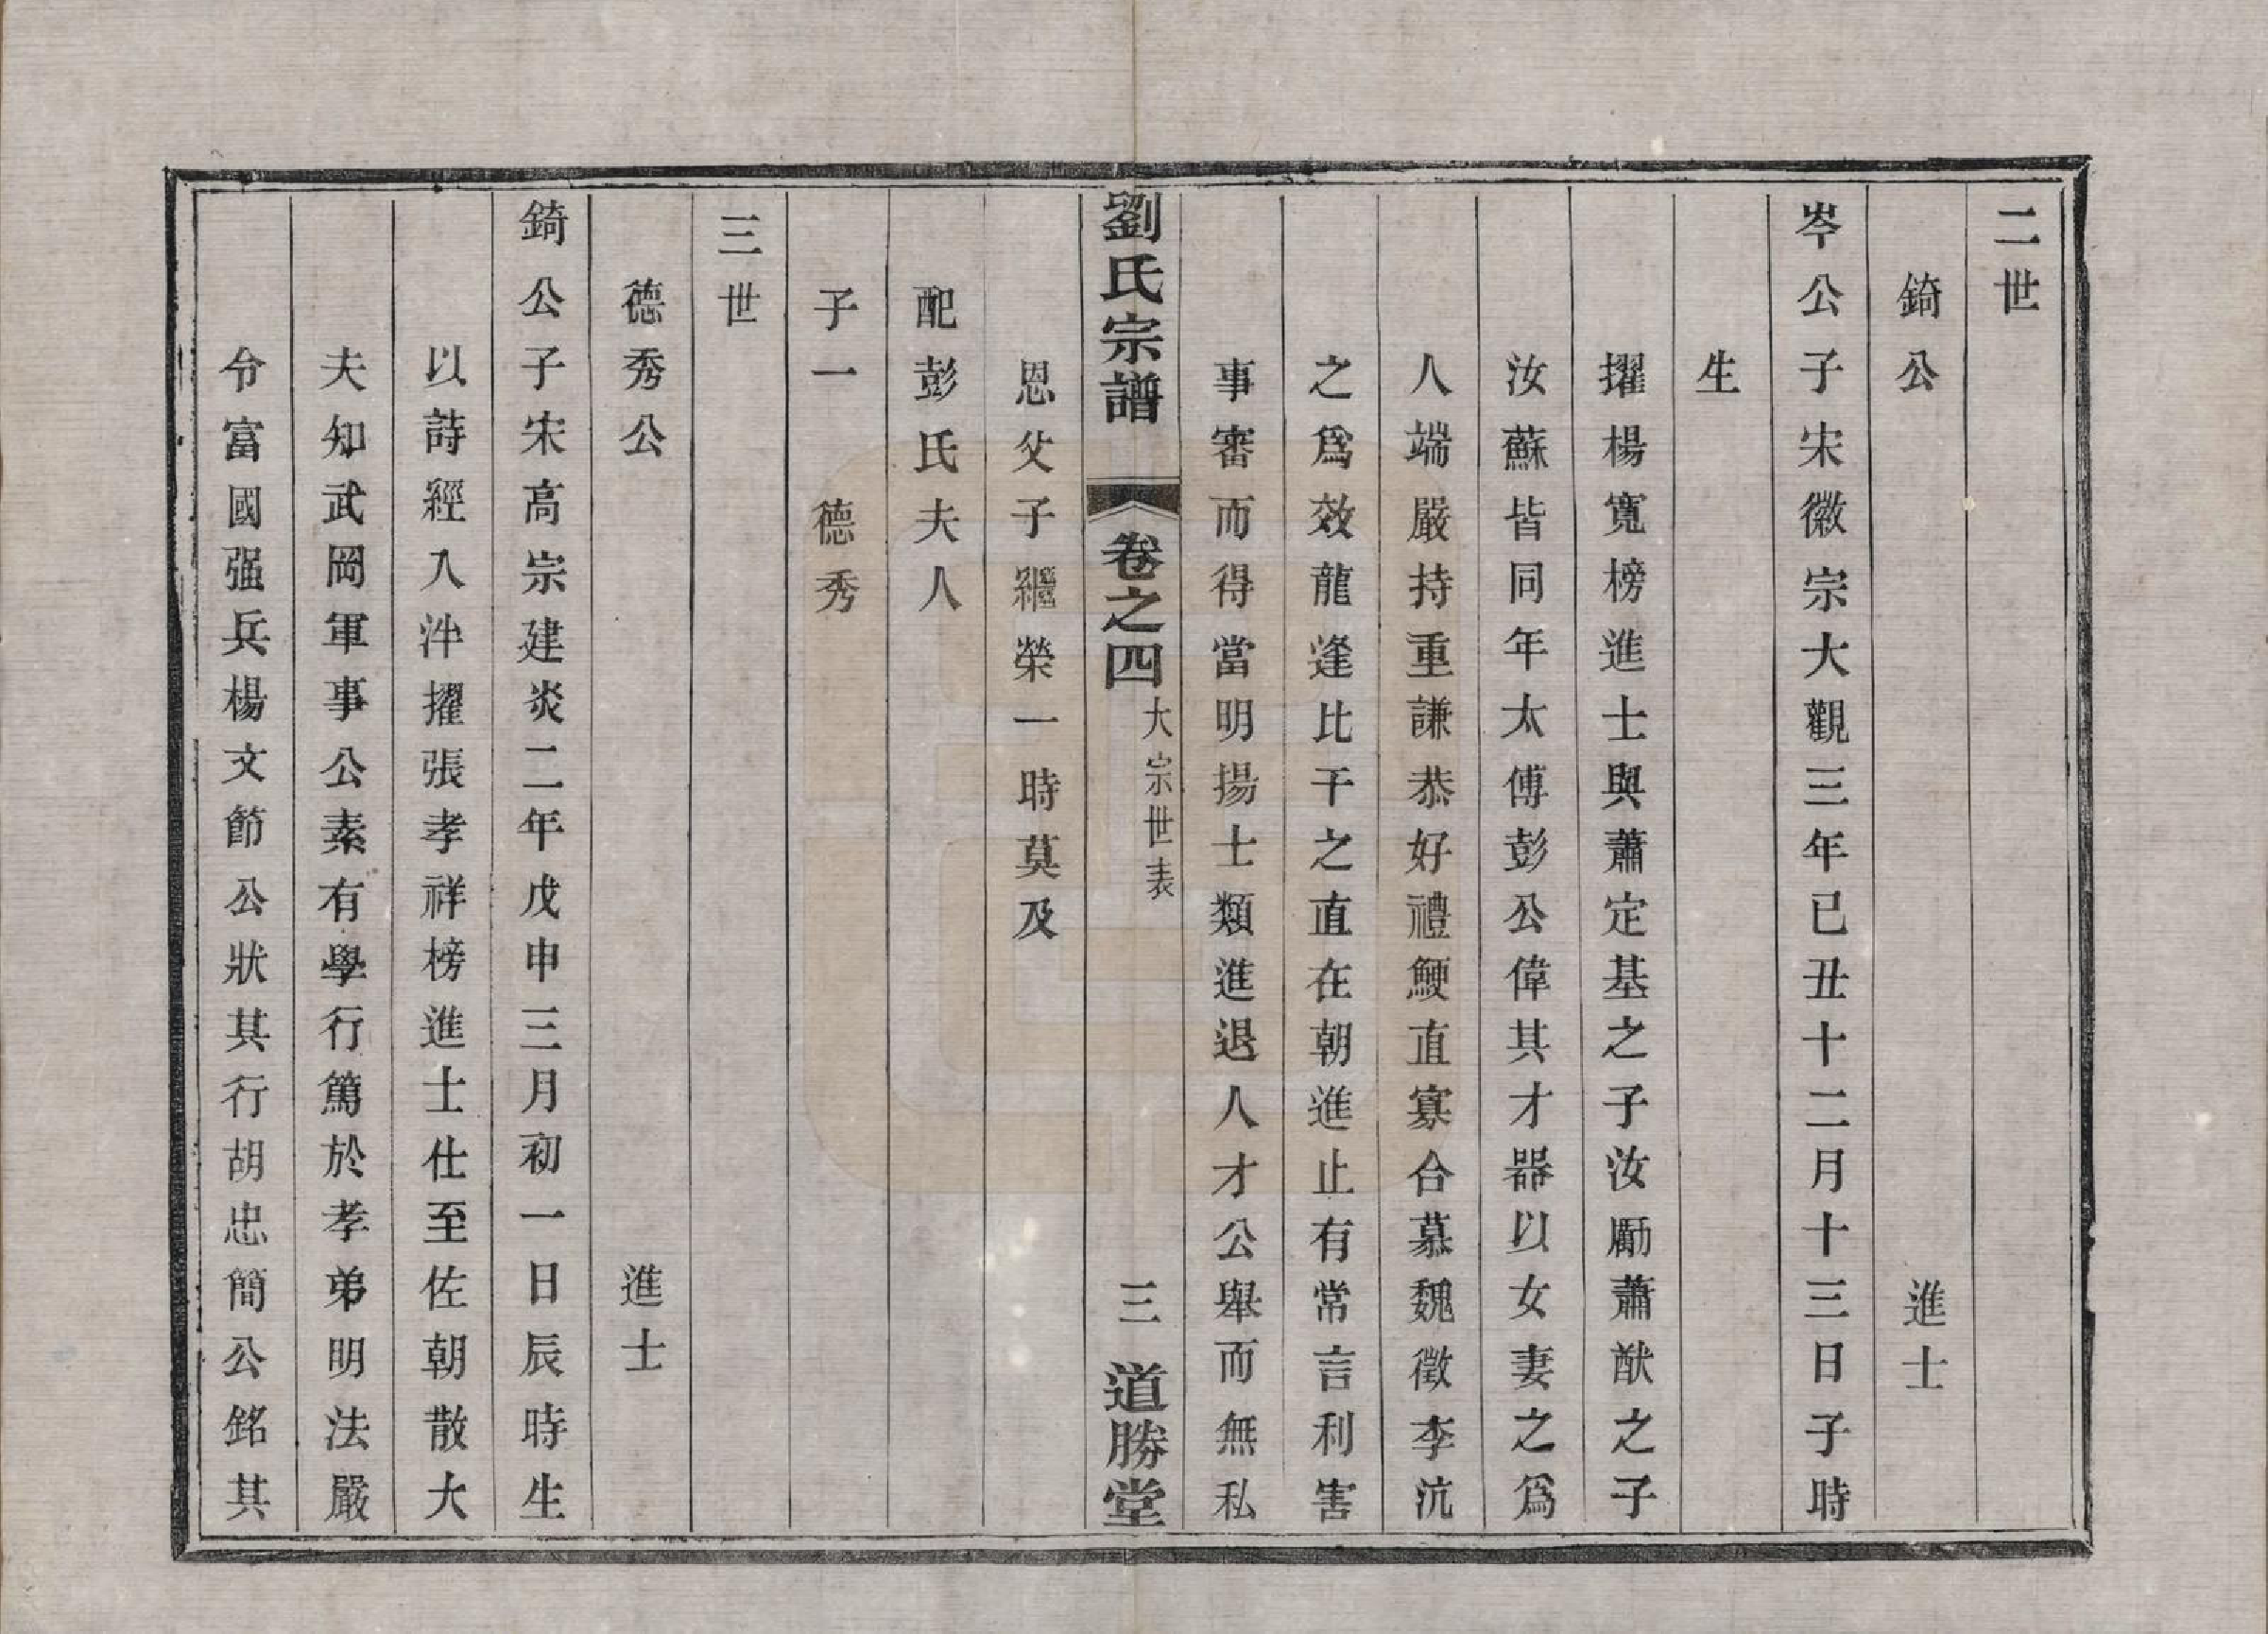 二世
錡公　進士
岑公子宋徽宗大觀三年已丑十二月十三日子時
生
擢楊寬榜進士與蕭定基之子汝勵蕭猷之子
汝蘇皆同年太傅彭公偉其才器以女妻之爲
人端嚴持重謙恭好禮鯁直寡合慕魏徵李沆
之爲效龍逄比干之直在朝進止有常言利害
事審而得當明揚士類進退人才公舉而無私
劉氏宗譜　卷之四　大宗世表　三　道勝堂
恩父子繼榮一時莫及
配彭氏夫人
子一　德秀
三世
德秀公　進士
錡公子宋高宗建炎二年戊申三月初一日辰時生
以詩經入泮擢張孝祥榜進士仕至佐朝散大
夫知武岡軍事公素有學行篤於孝弟明法嚴
令富國强兵楊文節公狀其行胡忠簡公銘其